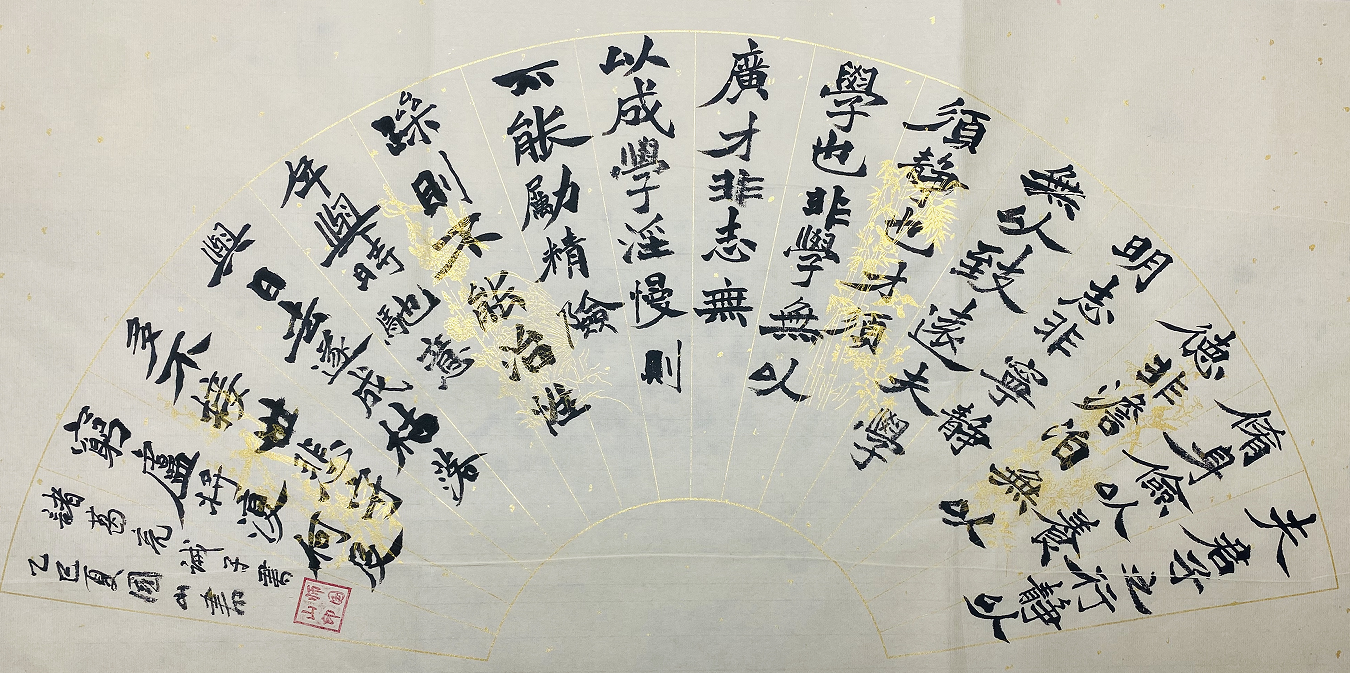 夫君子之行靜以
脩身儉以養
德非澹泊無以
明志非寧靜
無以致遠夫學
須靜也才須
學也非學無以
廣才非志無
以成學淫慢則
不能勵精險
躁則不能冶性
年與時馳意
與日去遂成枯落
多不接世悲守
窮廬將復何及
諸葛亮誡子書
乙巳夏國山書